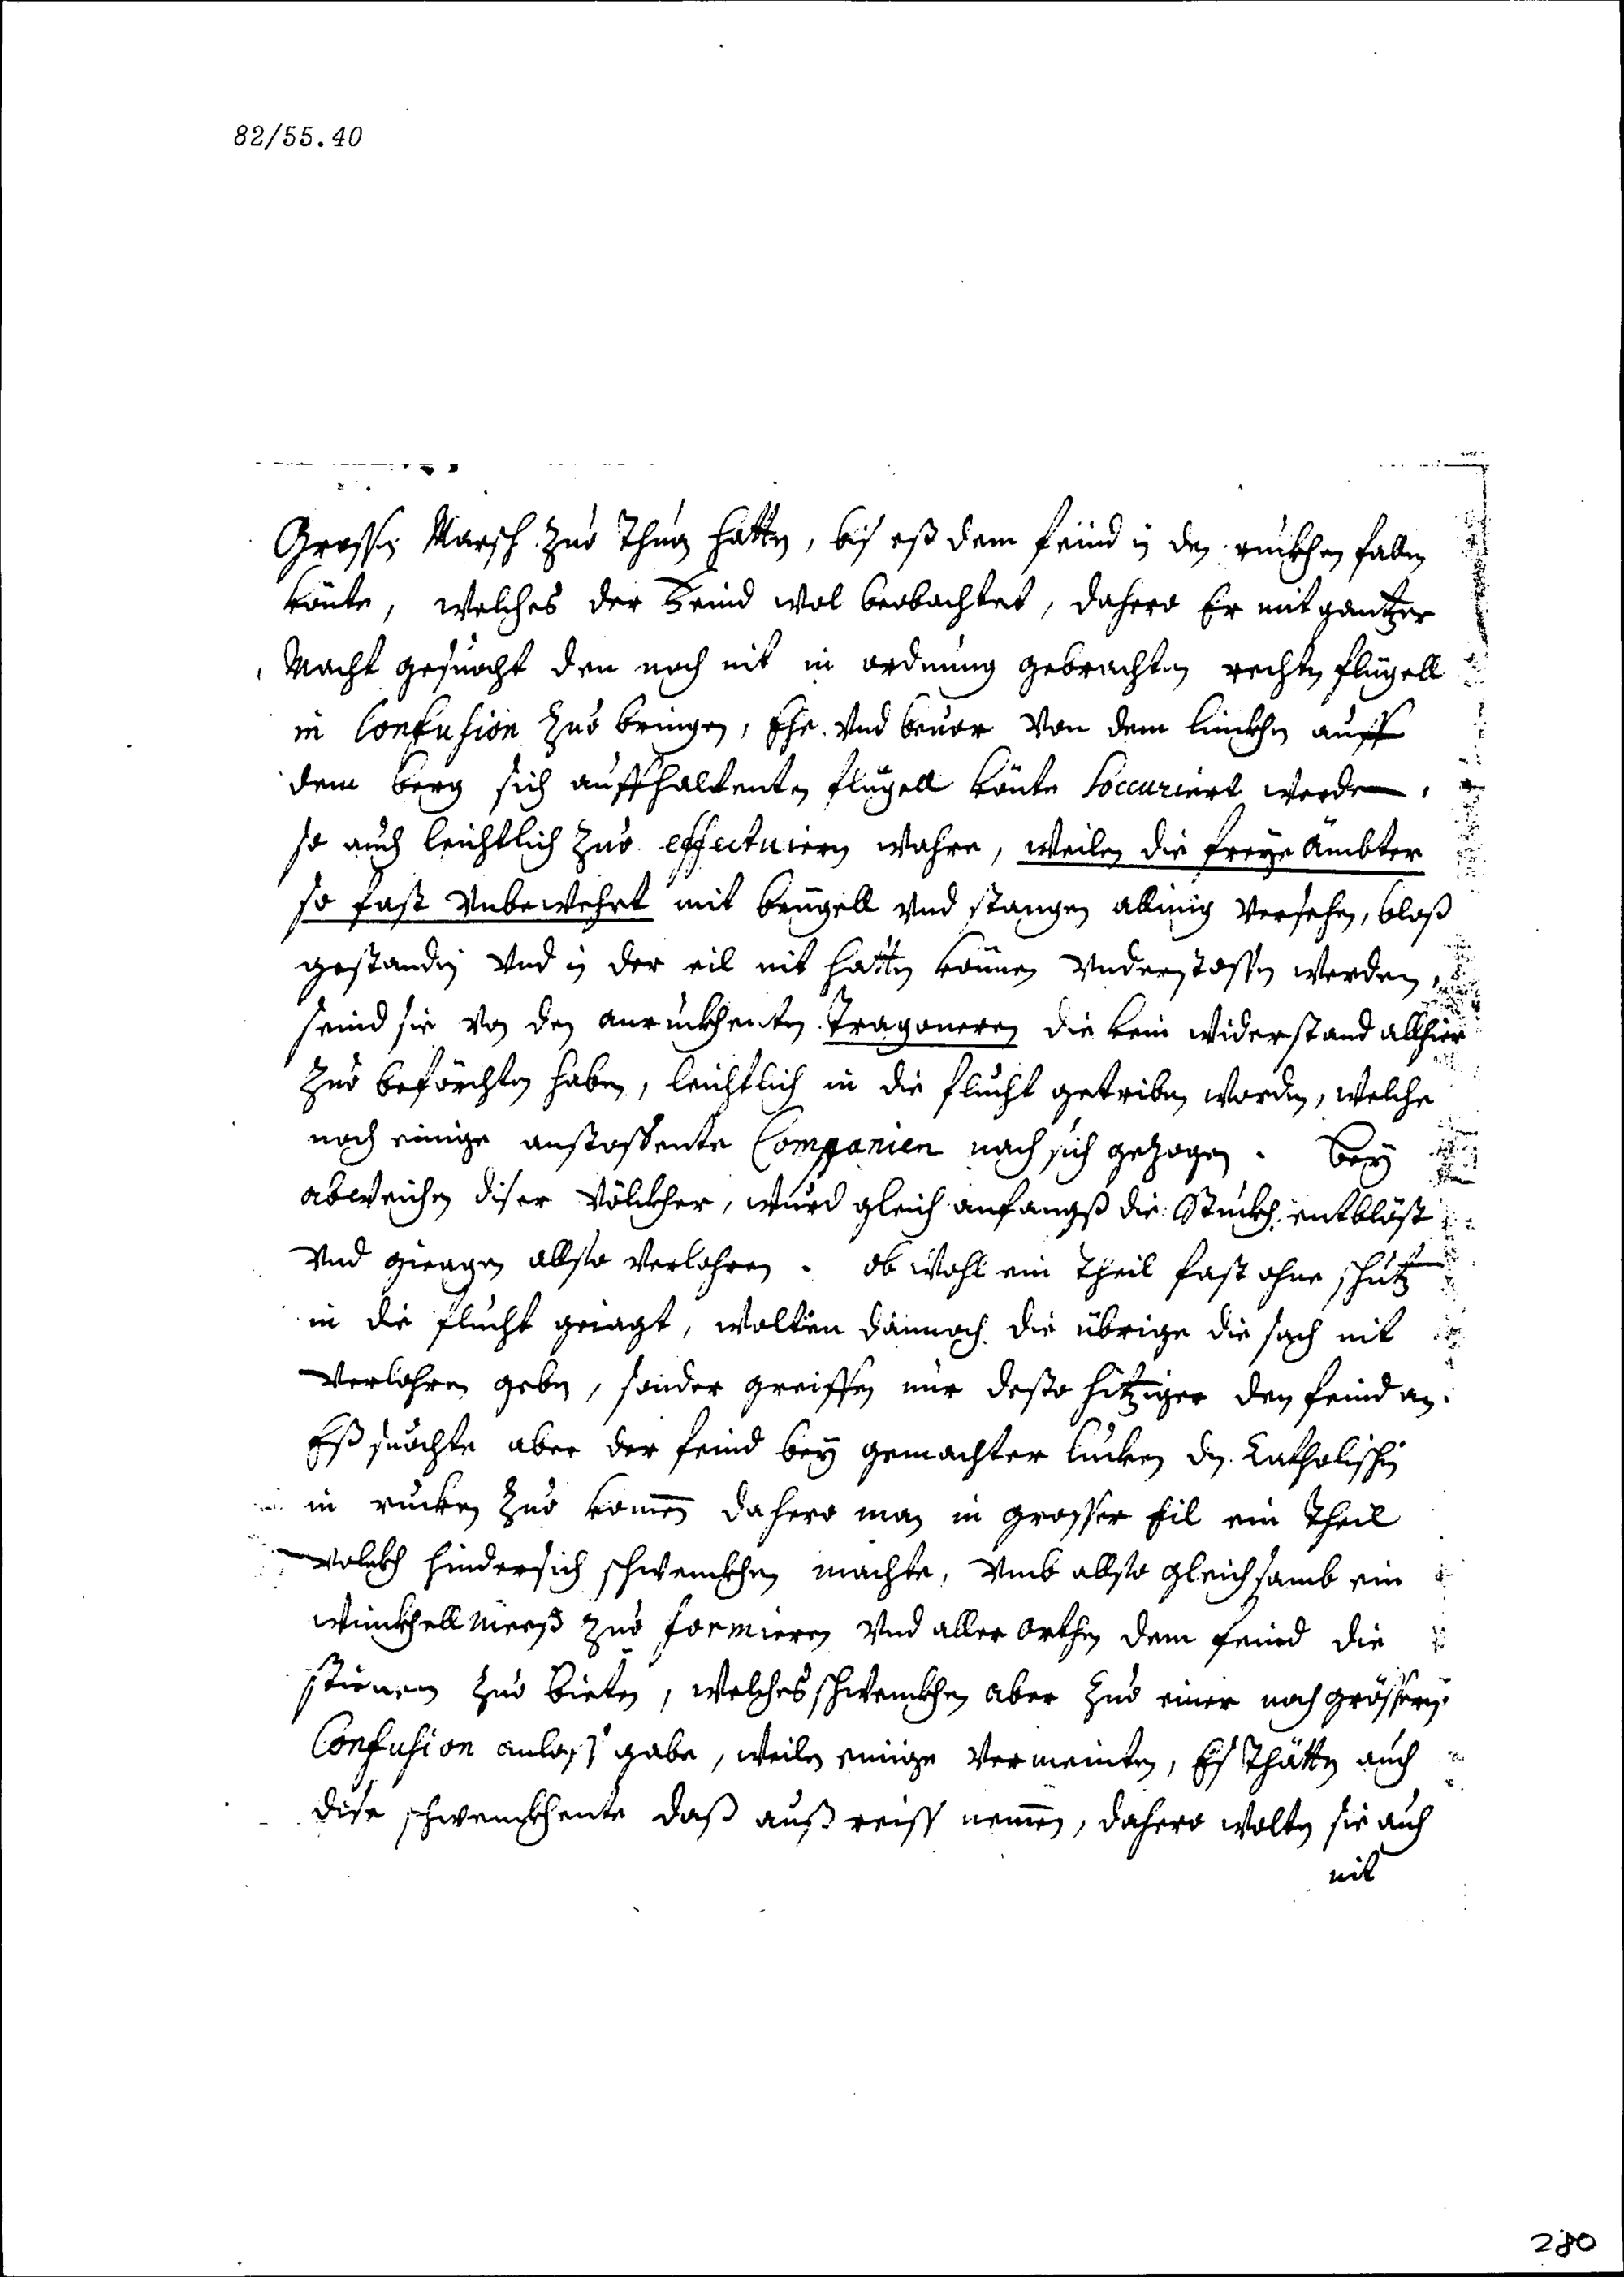 82/55.40
Grossen Marsch zuo Thuon hatten, bis eß dem feind in den ruckhen fallen
könte, welches der Feind wol beobachtet, dahero Er mit gantzer
Macht gesuocht den noch nit in ordnung gebrachten rechten flügell
in Confusion zuo bringen, Ehe Vnd beuor Von dem linckhen auff
dem berg sich auffhaltenten flügell könte Soccuriert werden,
so auch leichtlich zuo effectuiern wahre, weilen die freye Ämbter
so fast Vnbewehrt mit brügell Vnd stangen allinig Versehen, bloß
gestanden Vnd in der eil nit hatten können Vnderstossen werden,
seind sie Von den anruckhenten Tragoneren die kein widerstand allhier
zuo beförchten haben, leichtlich in die flucht getriben worden, welche
noch einige anstossente Companien nach sich gezogen. bey
abweichen diser Völckher, wurd gleich anfangß die Stuckh entblöst
Vnd giengen allso Verlohren. ob wohl ein Theil fast ohne schutz
in die flucht geiagt, wolten dannoch die übrige die sach nit
Verlohren geben, sonder greiffen nur desto hitziger den feind an.
Eß suochte aber der feind bey gemachter lucken den Catholischen
in rucken zuo komen dahero man in grosser Eil ein Theil
Volckh hindersich schwenckhen machte, Vmb allso gleichsamb ein
winckhell Meeß zuo formieren Vnd aller Orthen dem feind die
stirnen zuo bieten, welches schwenckhen aber zuo einer noch grösseren
Confusion anlass gabe, weilen einige Vermeinten, Es Thätten auch
dise schwenckhente daß auß reiss nemen, dahero wolten sie auch
nit
280